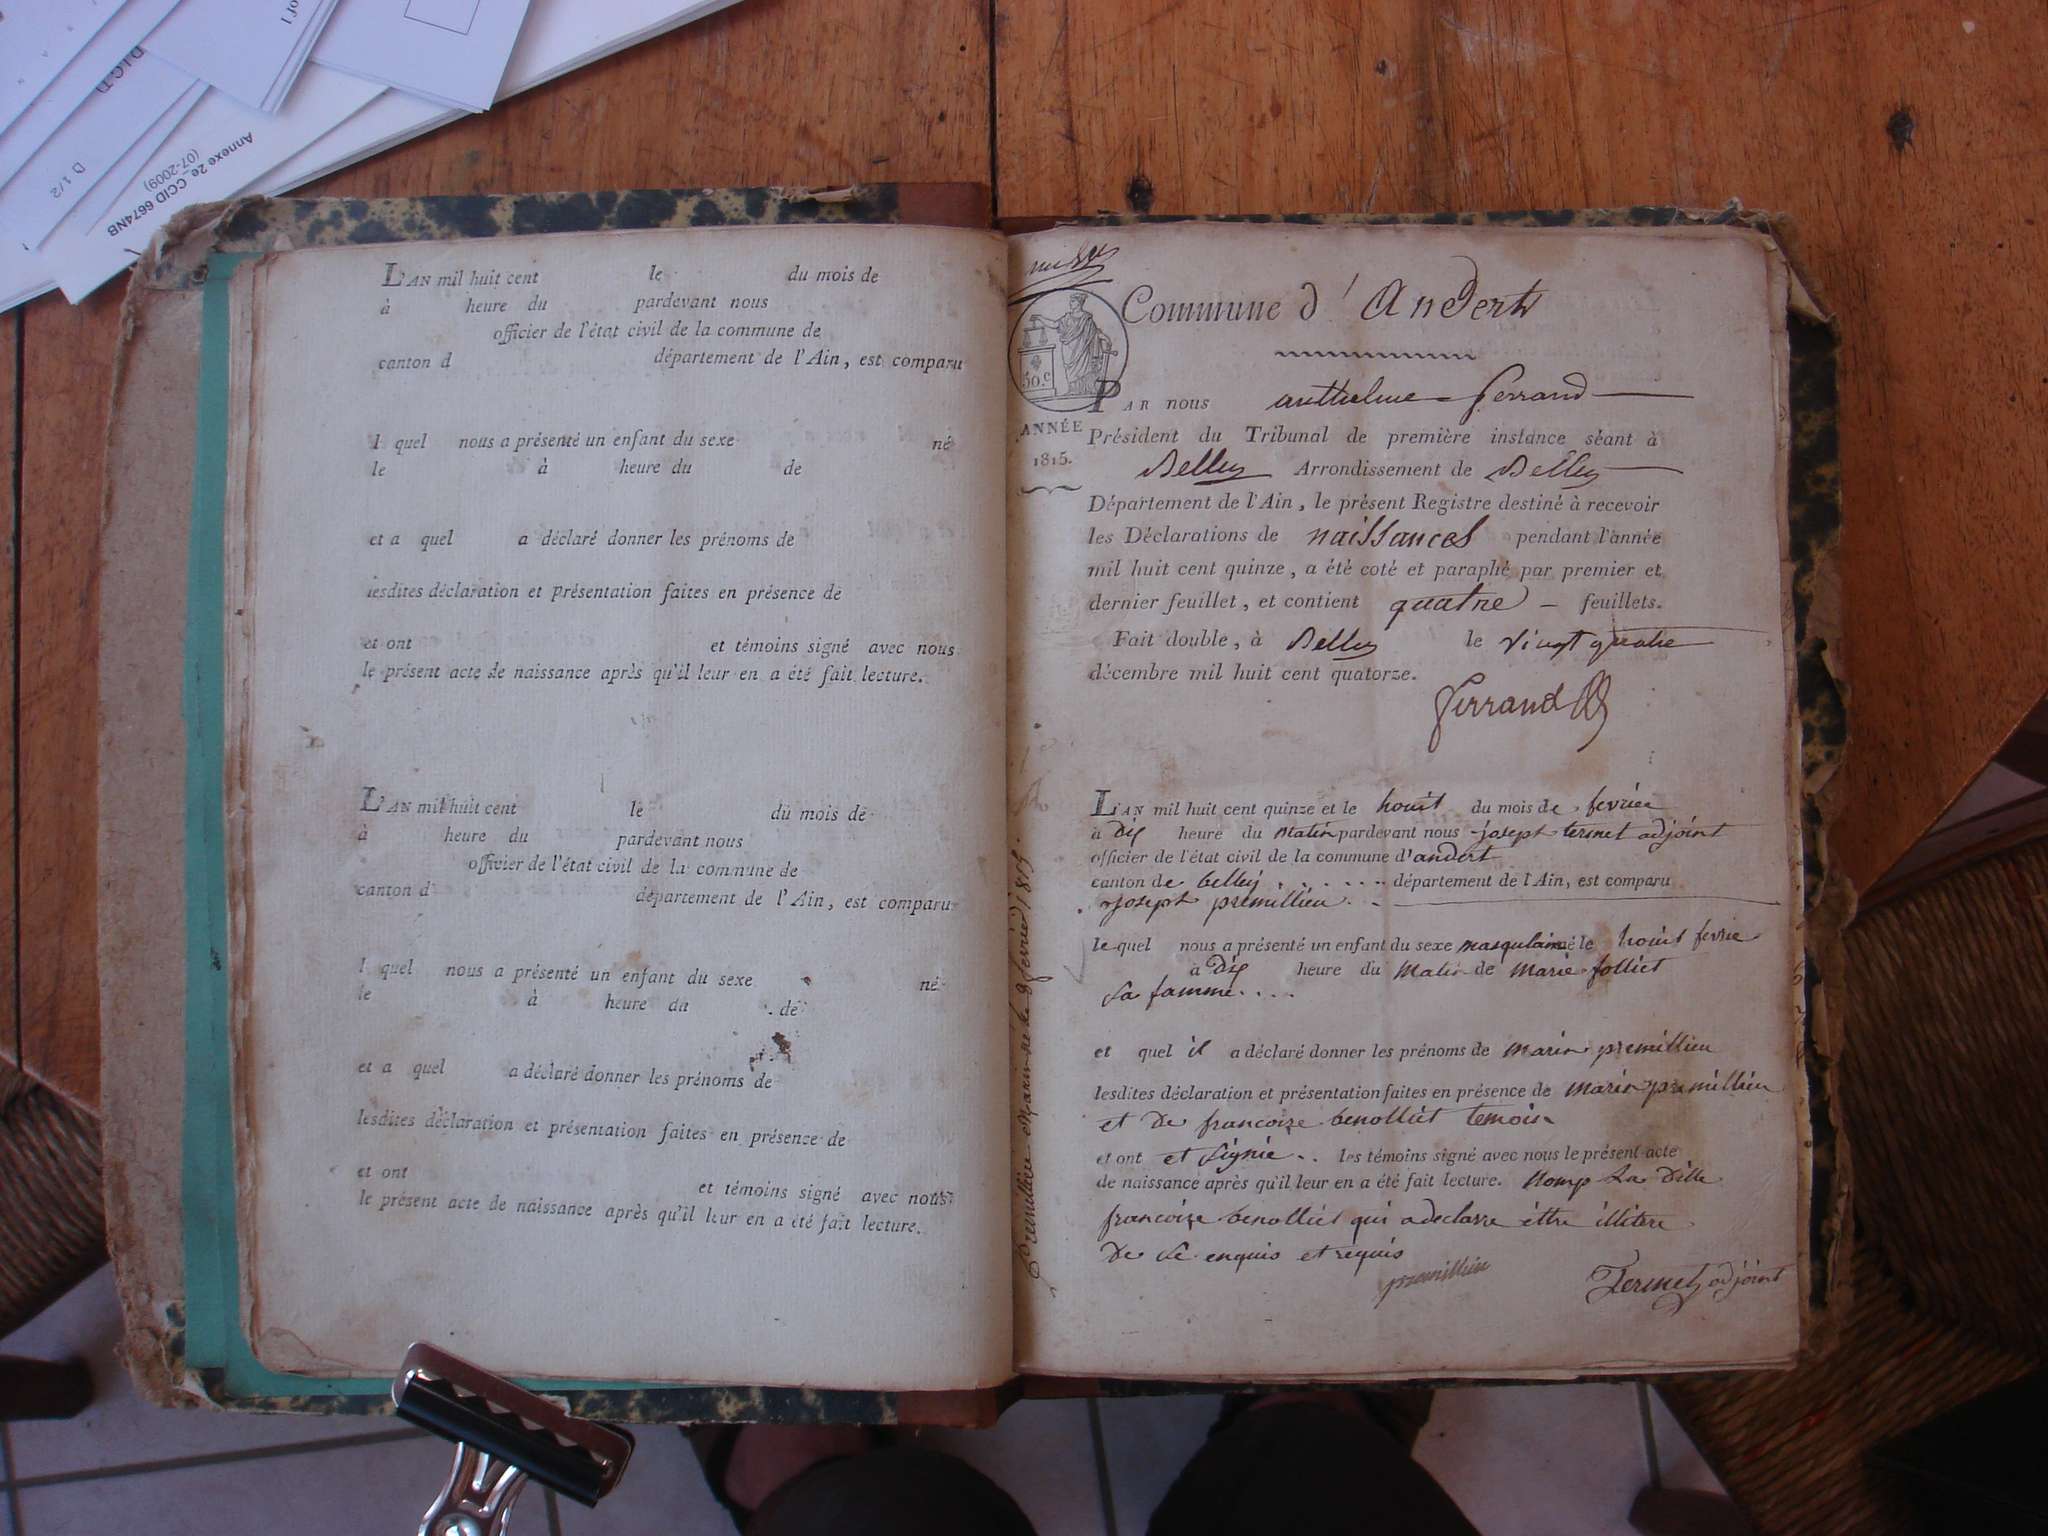 of 1
D.I.C.T)
D 1/2
Annexe 2e CCID 6674NB
(07-2009)
L'AN mil huit cent le du mois de
à heure du pardevant nous
officier de l'état civil de la commune de
canton d département de l'Ain, est comparu
l quel nous a présenté un enfant du sexe né
le à heure du de
et a quel a déclaré donner les prénoms de
lesdites déclaration et présentation faites en présence de
et ont et témoins signé avec nous
le présent acte de naissance après qu'il leur en a été fait lecture.
L'AN mil huit cent le du mois de
à heure du pardevant nous
officier de l'état civil de la commune de
canton d département de l'Ain, est comparu
l quel nous a présenté un enfant du sexe né
le à heure du de
et a quel a déclaré donner les prénoms de
lesdites déclaration et présentation faites en présence de
et ont et témoins signé avec nous
le présent acte de naissance après qu'il leur en a été fait lecture.
Commune d'Andert
50.c
PAR nous anthelme ferrand
ANNÉE
1815.
Président du Tribunal de première instance séant à
Belley Arrondissement de Belley
Département de l'Ain, le présent Registre destiné à recevoir
les Déclarations de naissances pendant l'année
mil huit cent quinze, a été coté et paraphé par premier et
dernier feuillet, et contient quatre - feuillets.
Fait double, à Belley le vingt quatre
décembre mil huit cent quatorze.
ferrand
L'AN mil huit cent quinze et le houit du mois de fevrier
à Dix heure du matin pardevant nous joseph termet adjoint
officier de l'état civil de la commune d'andert
canton de belley département de l'Ain, est comparu
joseph premillieu
le quel nous a présenté un enfant du sexe masqulain né le houit fevrie
à Dix heure du matin de marie folliet
sa famme....
et quel il a déclaré donner les prénoms de marin premillieu
lesdites déclaration et présentation faites en présence de marin premillieu
et de francoize benolliet temoin
et ont et signie.. les témoins signé avec nous le présent acte
de naissance après qu'il leur en a été fait lecture. nomp la ditte
francoize benolliet qui a declarre éttre illitere
de se enquis et requis
premillieu
Termet adjoint
Premillieu Marin né le 8 fevrier 1815.